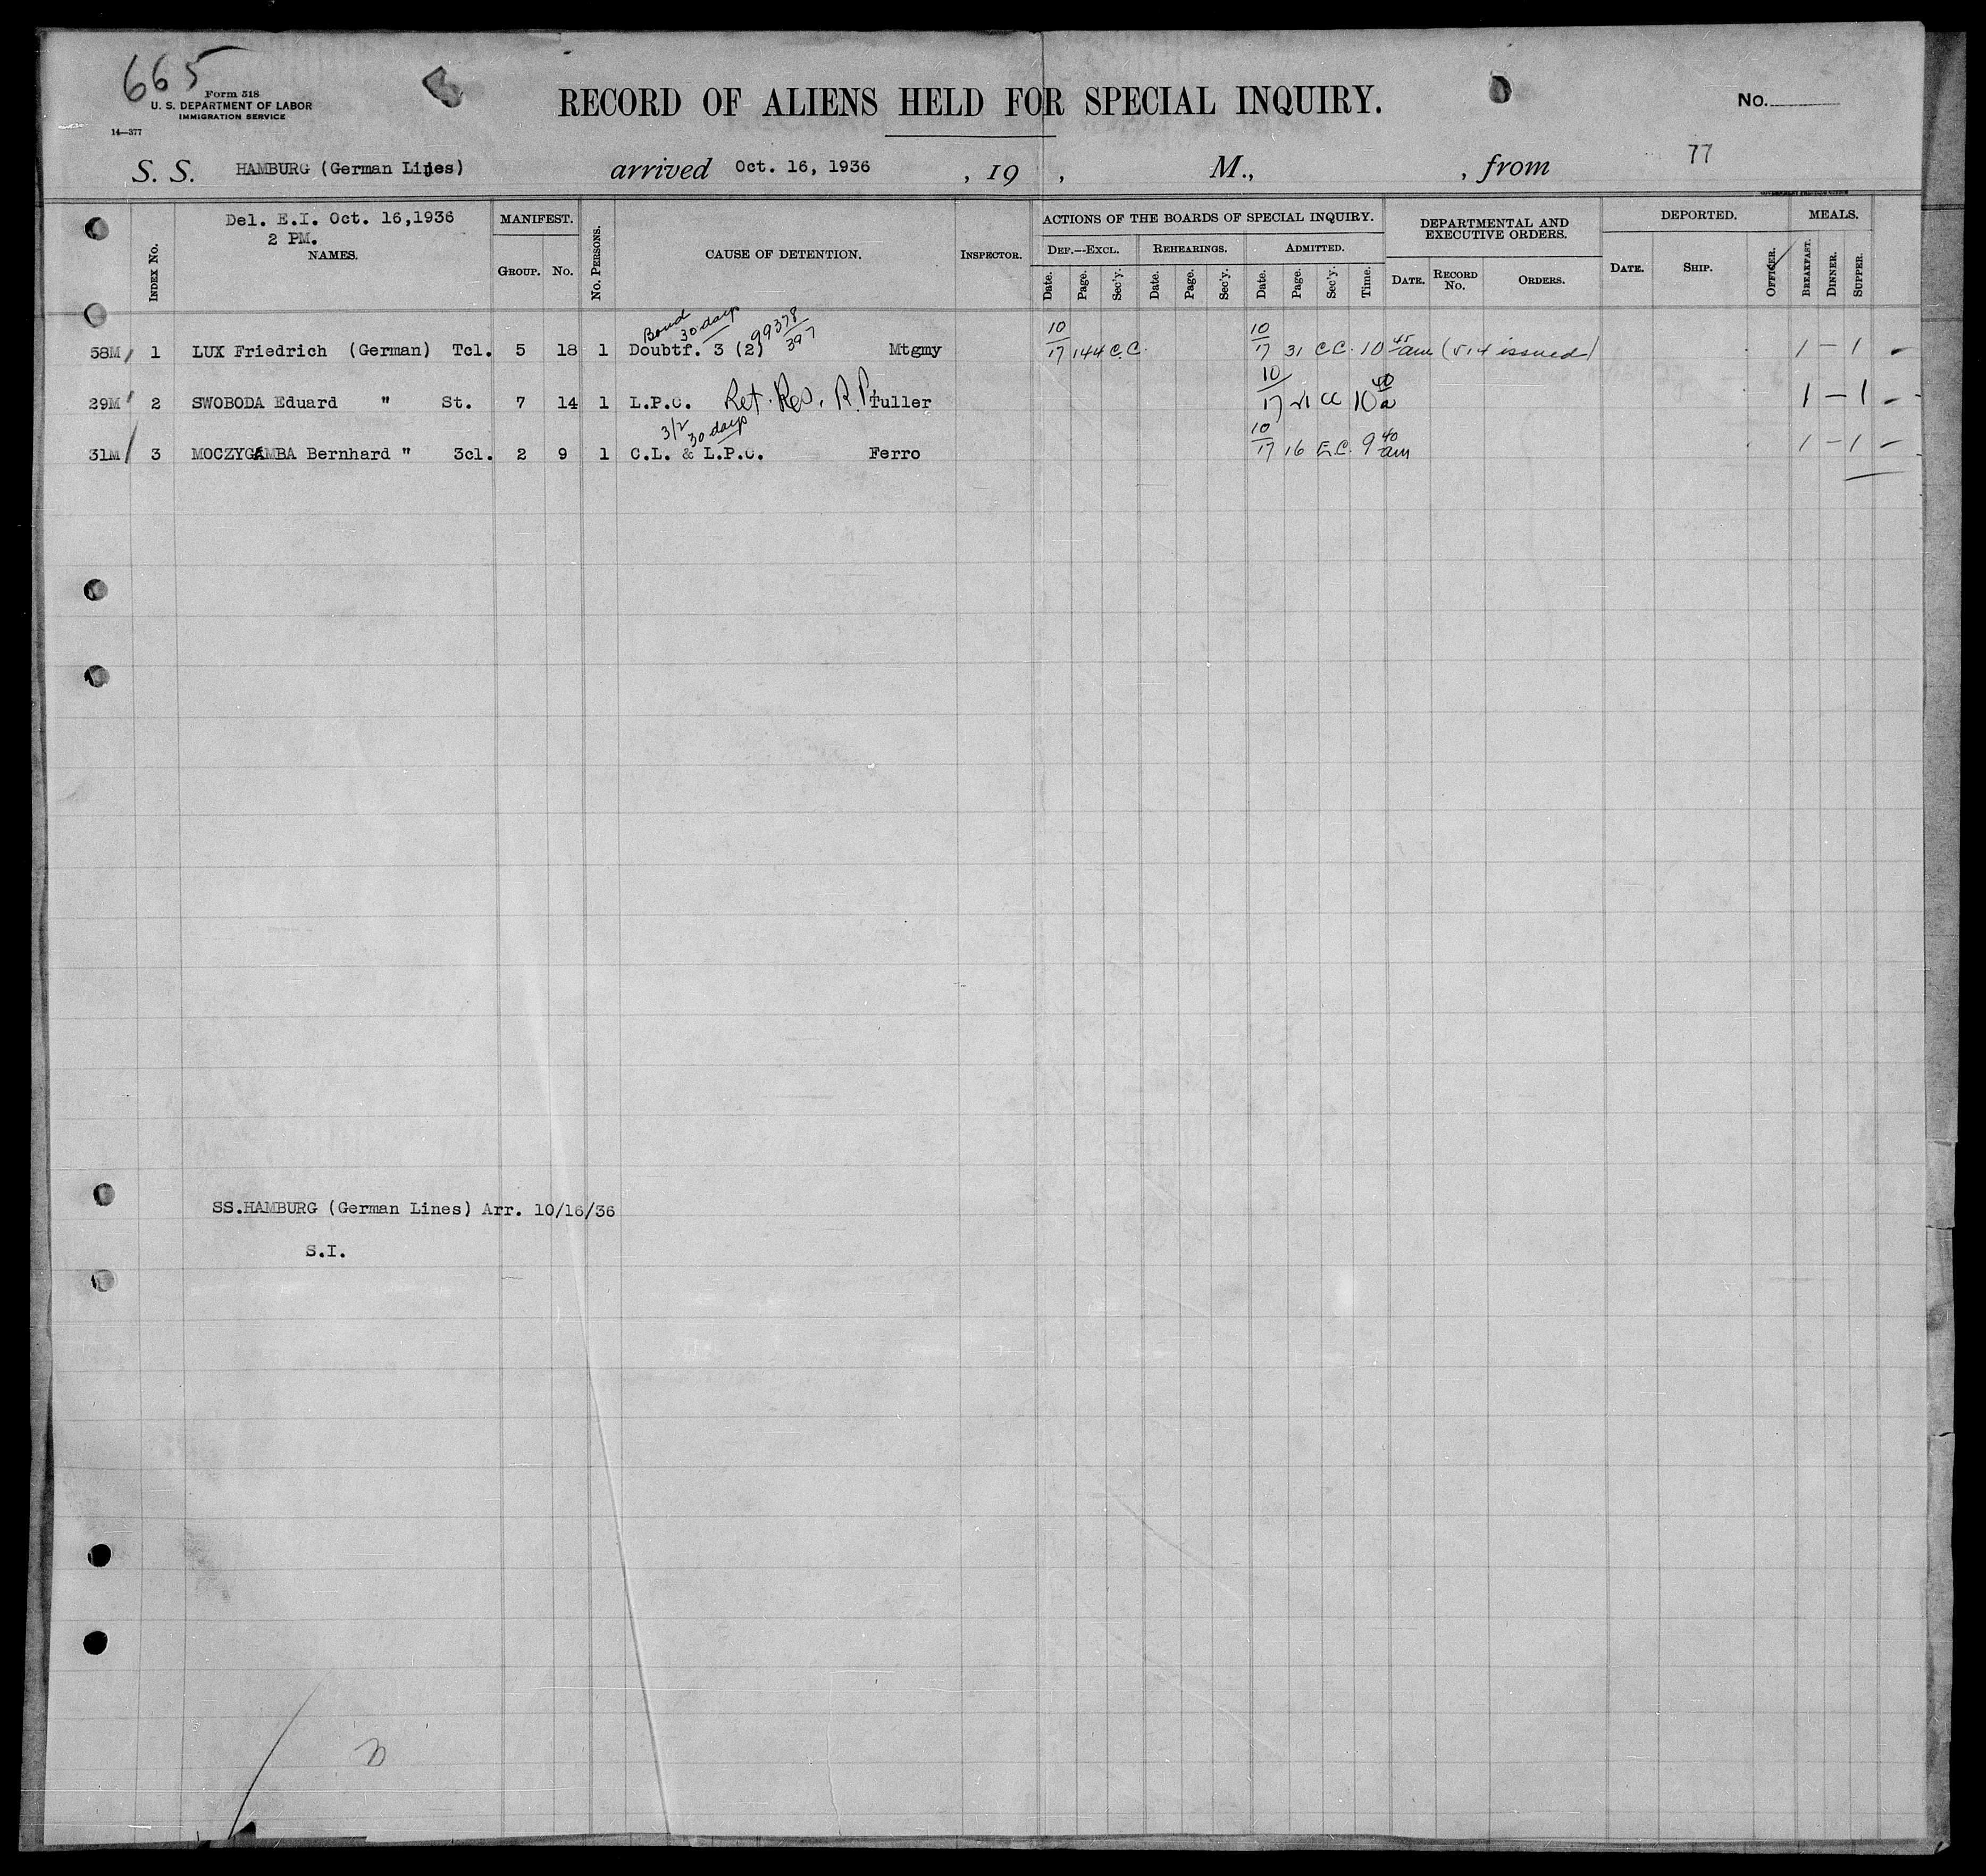 665
Form 518
U. S. DEPARTMENT OF LABOR
IMMIGRATION SERVICE
14—377
RECORD OF ALIENS HELD FOR SPECIAL INQUIRY.
No.
77
S. S. HAMBURG (German Lines) arrived Oct. 16, 1936 , 19 , M., , from
Del. E.I. Oct. 16,1936
2 PM.
INDEX No. NAMES. MANIFEST. GROUP. No. No. PERSONS. CAUSE OF DETENTION. INSPECTOR.
ACTIONS OF THE BOARDS OF SPECIAL INQUIRY. DEPARTMENTAL AND EXECUTIVE ORDERS. DEPORTED. MEALS.
DEF.—EXCL. REHEARINGS. ADMITTED.
Date. Page. Sec'y. Date. Page. Sec'y. Date. Page. Sec'y. Time. DATE. RECORD No. ORDERS. DATE. SHIP. OFFICER. BREAKFAST. DINNER. SUPPER.
Bond 30 days 99378/397
58M 1 LUX Friedrich (German) Tcl. 5 18 1 Doubtf. 3 (2) Mtgmy 10/17 144 C.C. 10/17 31 C.C. 10 45 am (514 issued) 1 – 1 –
29M 2 SWOBODA Eduard " St. 7 14 1 L.P.C. Ret. Res. R.P. Tuller 10/17 21 CC 10 40 a 1 – 1 –
3/2 30 days
31M 3 MOCZYGEMBA Bernhard " 3cl. 2 9 1 C.L. & L.P.C. Ferro 10/17 16 E.C. 9 40 am 1 – 1 –
SS.HAMBURG (German Lines) Arr. 10/16/36
S.I.